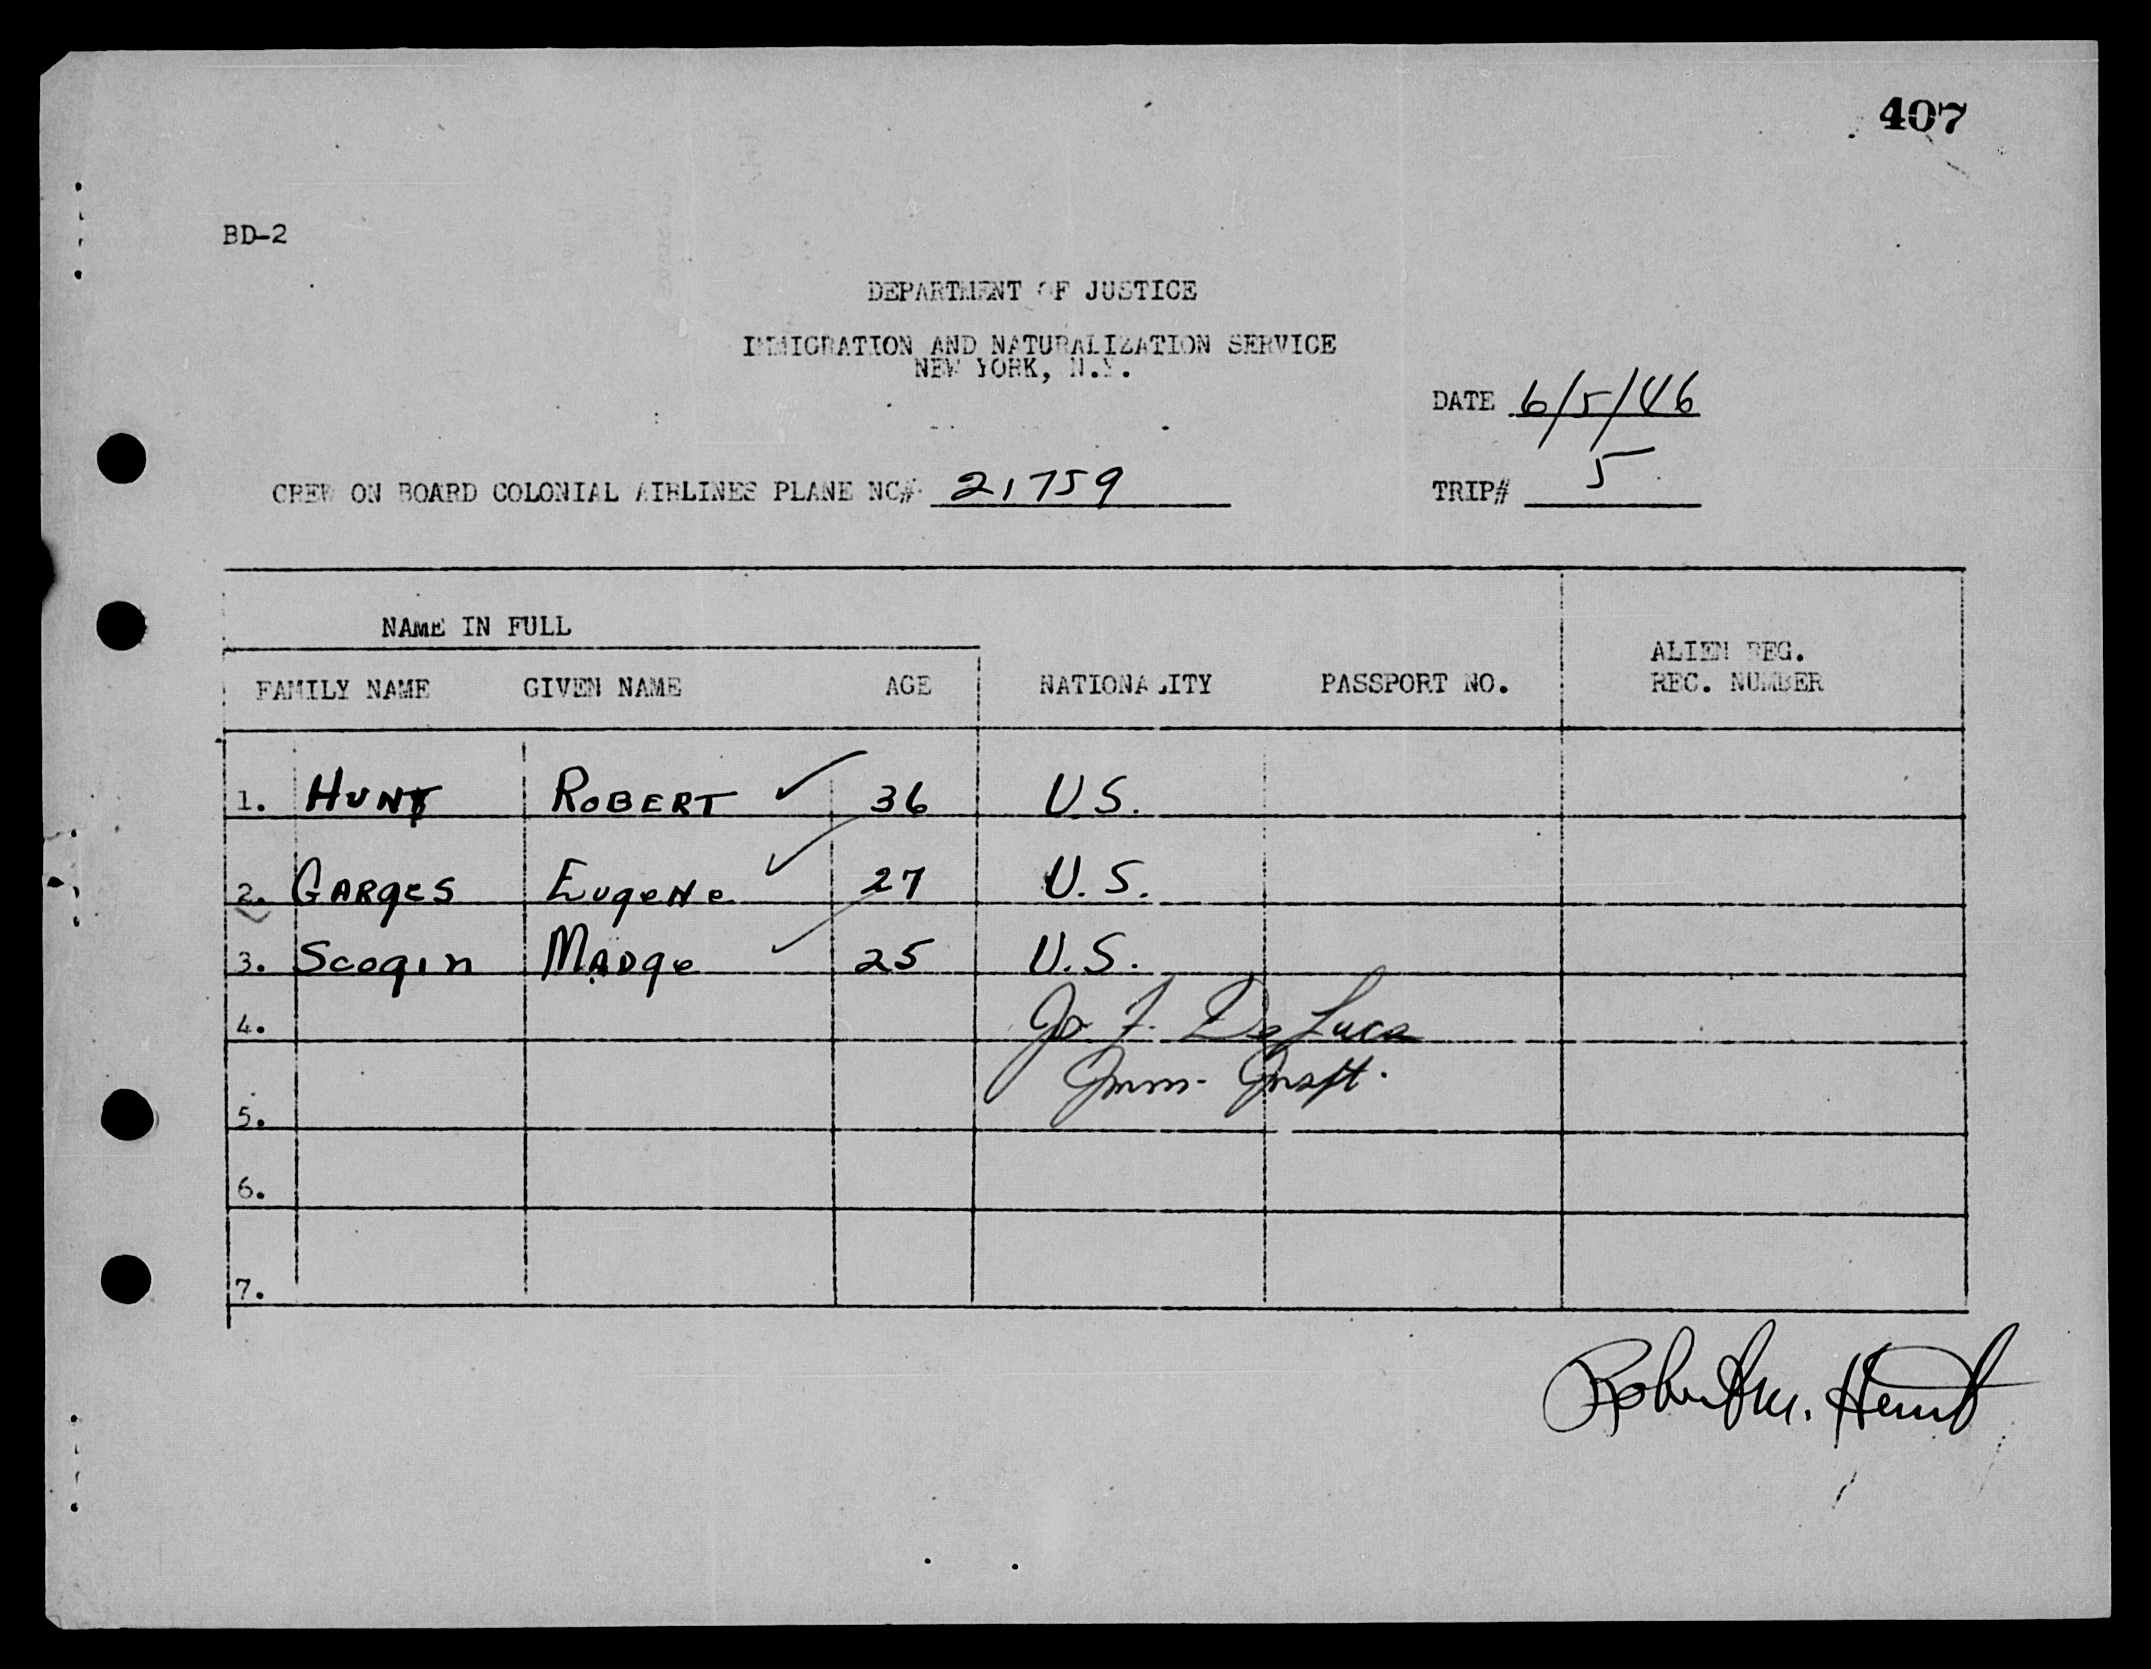 407
BD-2
DEPARTMENT OF JUSTICE
IMMIGRATION AND NATURALIZATION SERVICE
NEW YORK, N.Y.
DATE 6/5/46
CREW ON BOARD COLONIAL AIRLINES PLANE NC# 21759 TRIP# 5
NAME IN FULL
FAMILY NAME GIVEN NAME AGE NATIONALITY PASSPORT NO. ALIEN REG. REC. NUMBER
1. HUNT ROBERT ✓ 36 U.S.
2. GARGES EUGENE ✓ 27 U.S.
3. Scogin MADGE ✓ 25 U.S.
4. Jo F. De Luca
Imm. Inspt.
5.
6.
7.
Robert M. Hunt